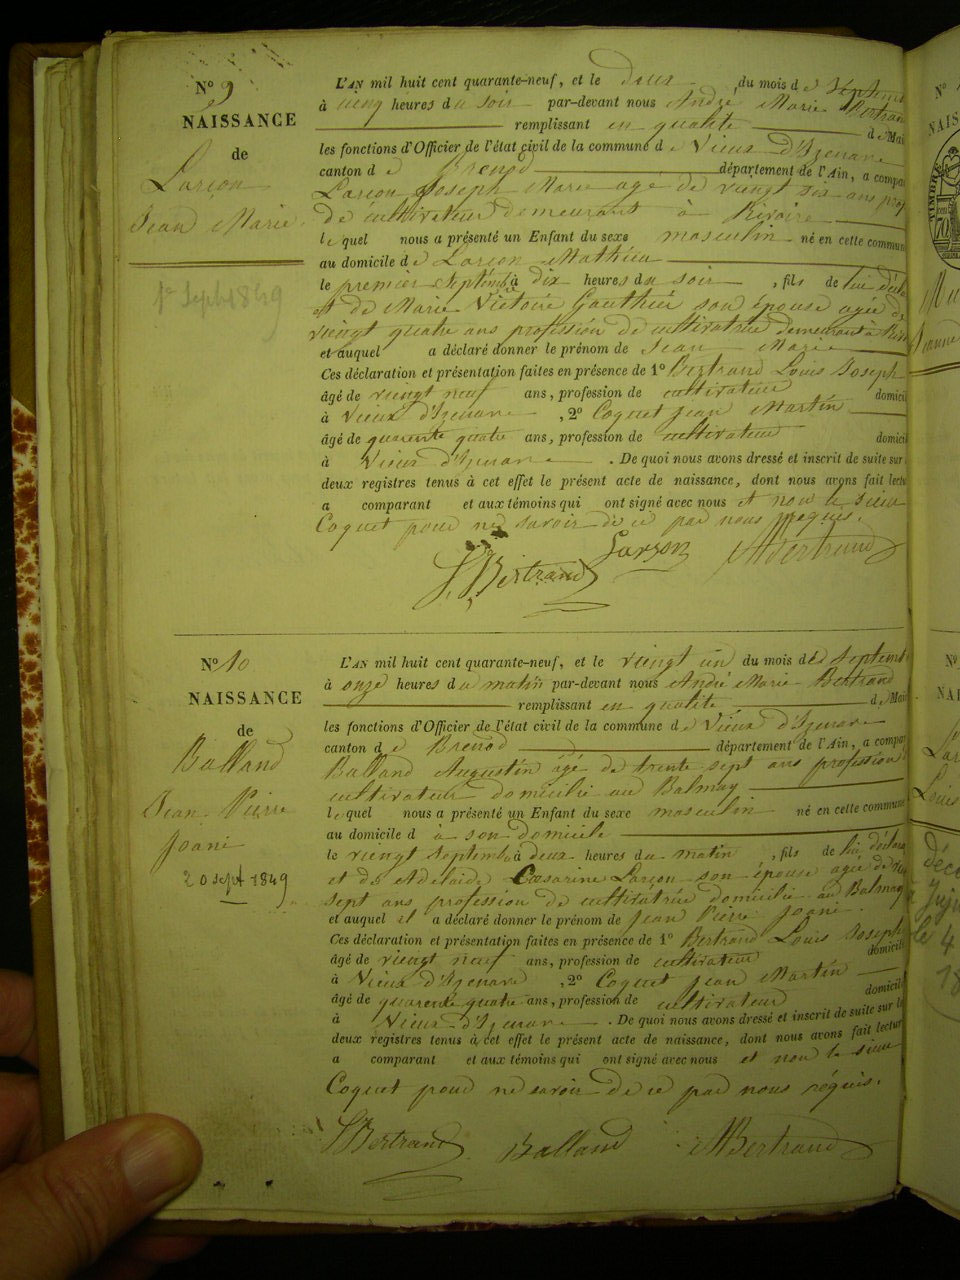 N° 9
NAISSANCE
de
Larçon
Jean Marie.
1er Sept 1849
L'AN mil huit cent quarante-neuf, et le deux du mois de Septemb
à cinq heures du soir par-devant nous André Marie Bertrand
remplissant en qualité de Mai
les fonctions d'Officier de l'état civil de la commune de Vieux d'Izenave
canton de Brenod département de l'Ain, a compar
Larçon Joseph Marie agé de vingt six ans prof
de cultivateur demeurant à
lequel nous a présenté un Enfant du sexe masculin né en cette commune
au domicile de Larçon Mathieu
le premier Septembre à dix heures du soir, fils de lui décla
et de Marie Victoire Gauthier son épouse agée de
vingt quatre ans profession de cultivatrice demeurant à
et auquel a déclaré donner le prénom de Jean Marie
Ces déclaration et présentation faites en présence de 1° Bertrand Louis Joseph
âgé de vingt neuf ans, profession de cultivateur domicil
à Vieux d'Izenave, 2° Coquet Jean Martin
âgé de quarente quatre ans, profession de cultivateur domicil
à Vieux d'Izenave. De quoi nous avons dressé et inscrit de suite sur
deux registres tenus à cet effet le présent acte de naissance, dont nous avons fait lectu
a comparant et aux témoins qui ont signé avec nous et non le sieur
Coquet pour ne savoir de ce par nous requis.
L Bertrand Larson AMBertrand
N° 10
NAISSANCE
de
Balland
Jean Pierre
Joani
20 sept 1849
L'AN mil huit cent quarante-neuf, et le vingt un du mois de Septemb
à onze heures du matin par-devant nous André Marie Bertrand
remplissant en qualité de Mai
les fonctions d'Officier de l'état civil de la commune de Vieux d'Izenave
canton de Brenod département de l'Ain, a compar
Balland Augustin agé de trente sept ans profession
cultivateur domicilié au Balmay
lequel nous a présenté un Enfant du sexe masculin né en cette commune
au domicile d à son domicile
le vingt Septembre à deux heures du matin, fils de lui déclara
et de Adelaide Cœsarine Larçon son épouse agée de
sept ans profession de cultivatrice domicilié au Balmay
et auquel il a déclaré donner le prénom de Jean Pierre Joani.
Ces déclaration et présentation faites en présence de 1° Bertrand Louis Joseph
âgé de vingt neuf ans, profession de cultivateur domicili
à Vieux d'Izenave, 2° Coquet Jean Martin
âgé de quarente quatre ans, profession de cultivateur domicil
à Vieux d'Izenave. De quoi nous avons dressé et inscrit de suite sur l
deux registres tenus à cet effet le présent acte de naissance, dont nous avons fait lectur
a comparant et aux témoins qui ont signé avec nous et non le sieur
Coquet pour ne savoir de ce par nous réquis.
L Bertrand Balland AMBertrand
N°
TIMBRE
70
Jeanne
N°
Louis
le 4